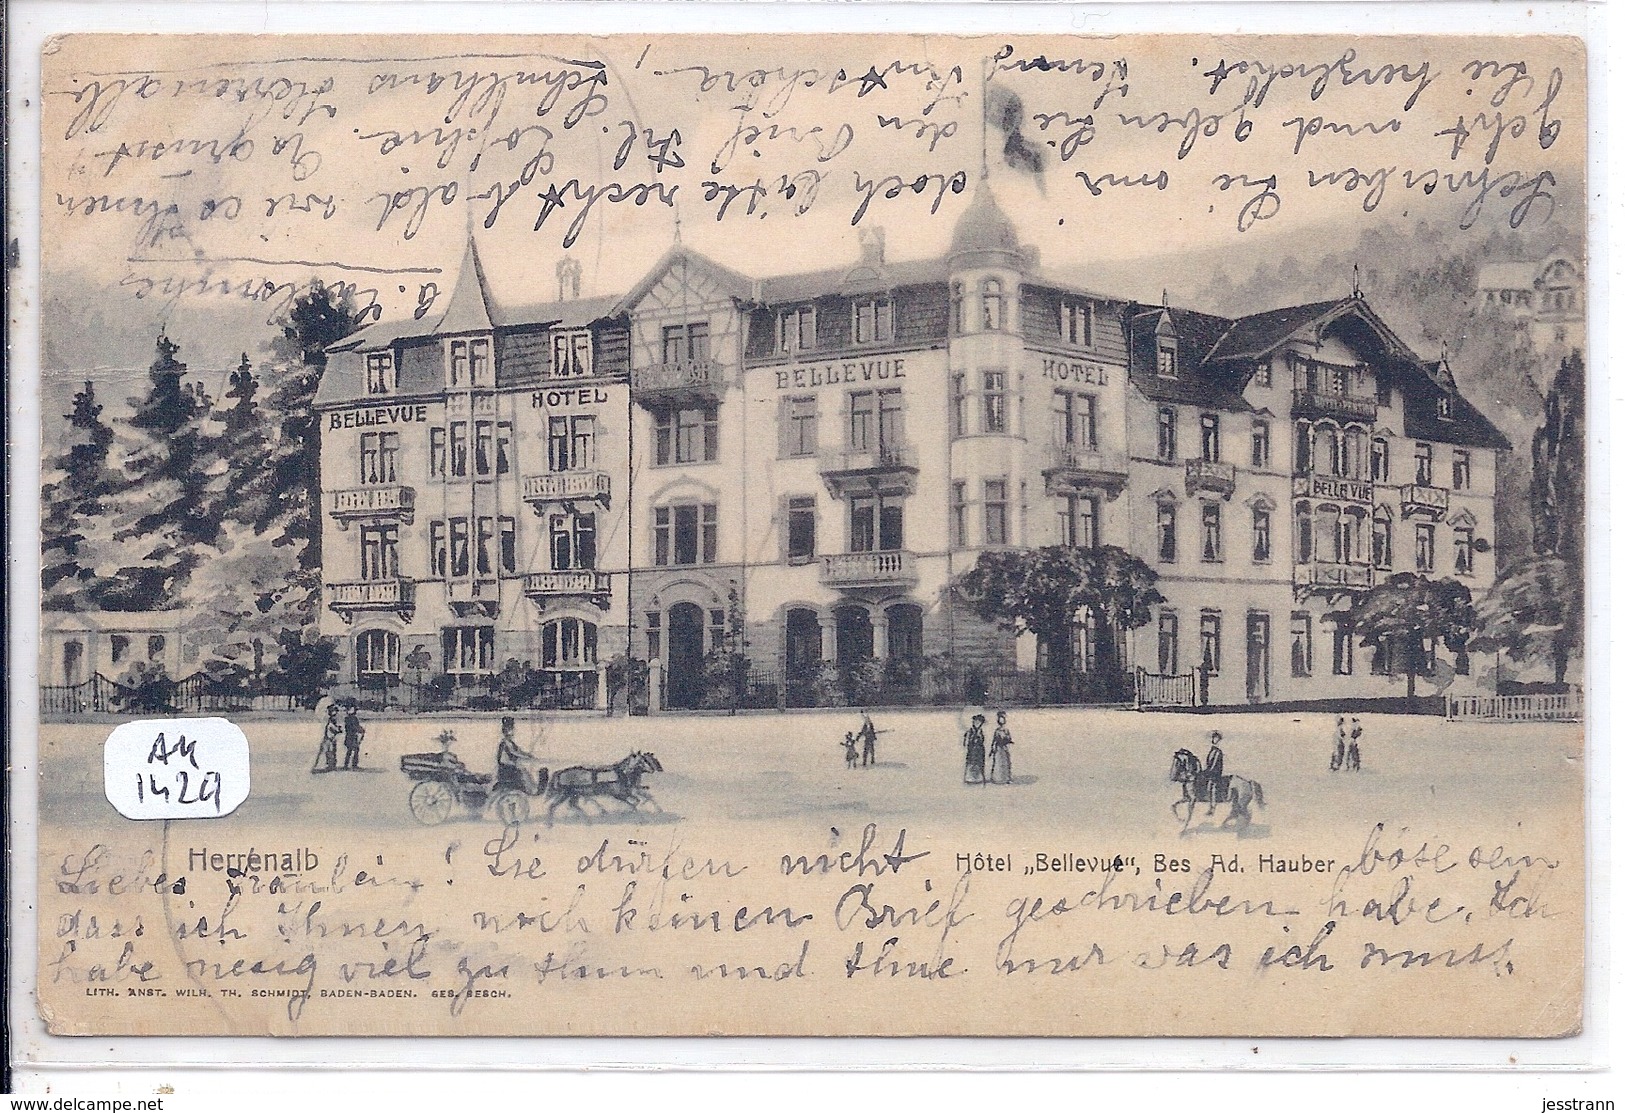 Schreiben Sie mir doch bitte recht bald wie es Ihnen
geht und geben Sie den Brief Frl. Sophie. Es grüsst
Sie herzlichst. Schulhaus Herrenalb.
BELLEVUE
HOTEL
BELLEVUE
HOTEL
BELLEVUE
AK
1429
Herrenalb
Hôtel „Bellevue“, Bes Ad. Hauber
Liebes Fräulein! Sie dürfen nicht böse sein
dass ich Ihnen noch keinen Brief geschrieben habe. Ich
habe riesig viel zu thun und thue nur was ich muss.
LITH. ANST. WILH. TH. SCHMIDT, BADEN-BADEN. GES. GESCH.
www.delcampe.net
jesstrann